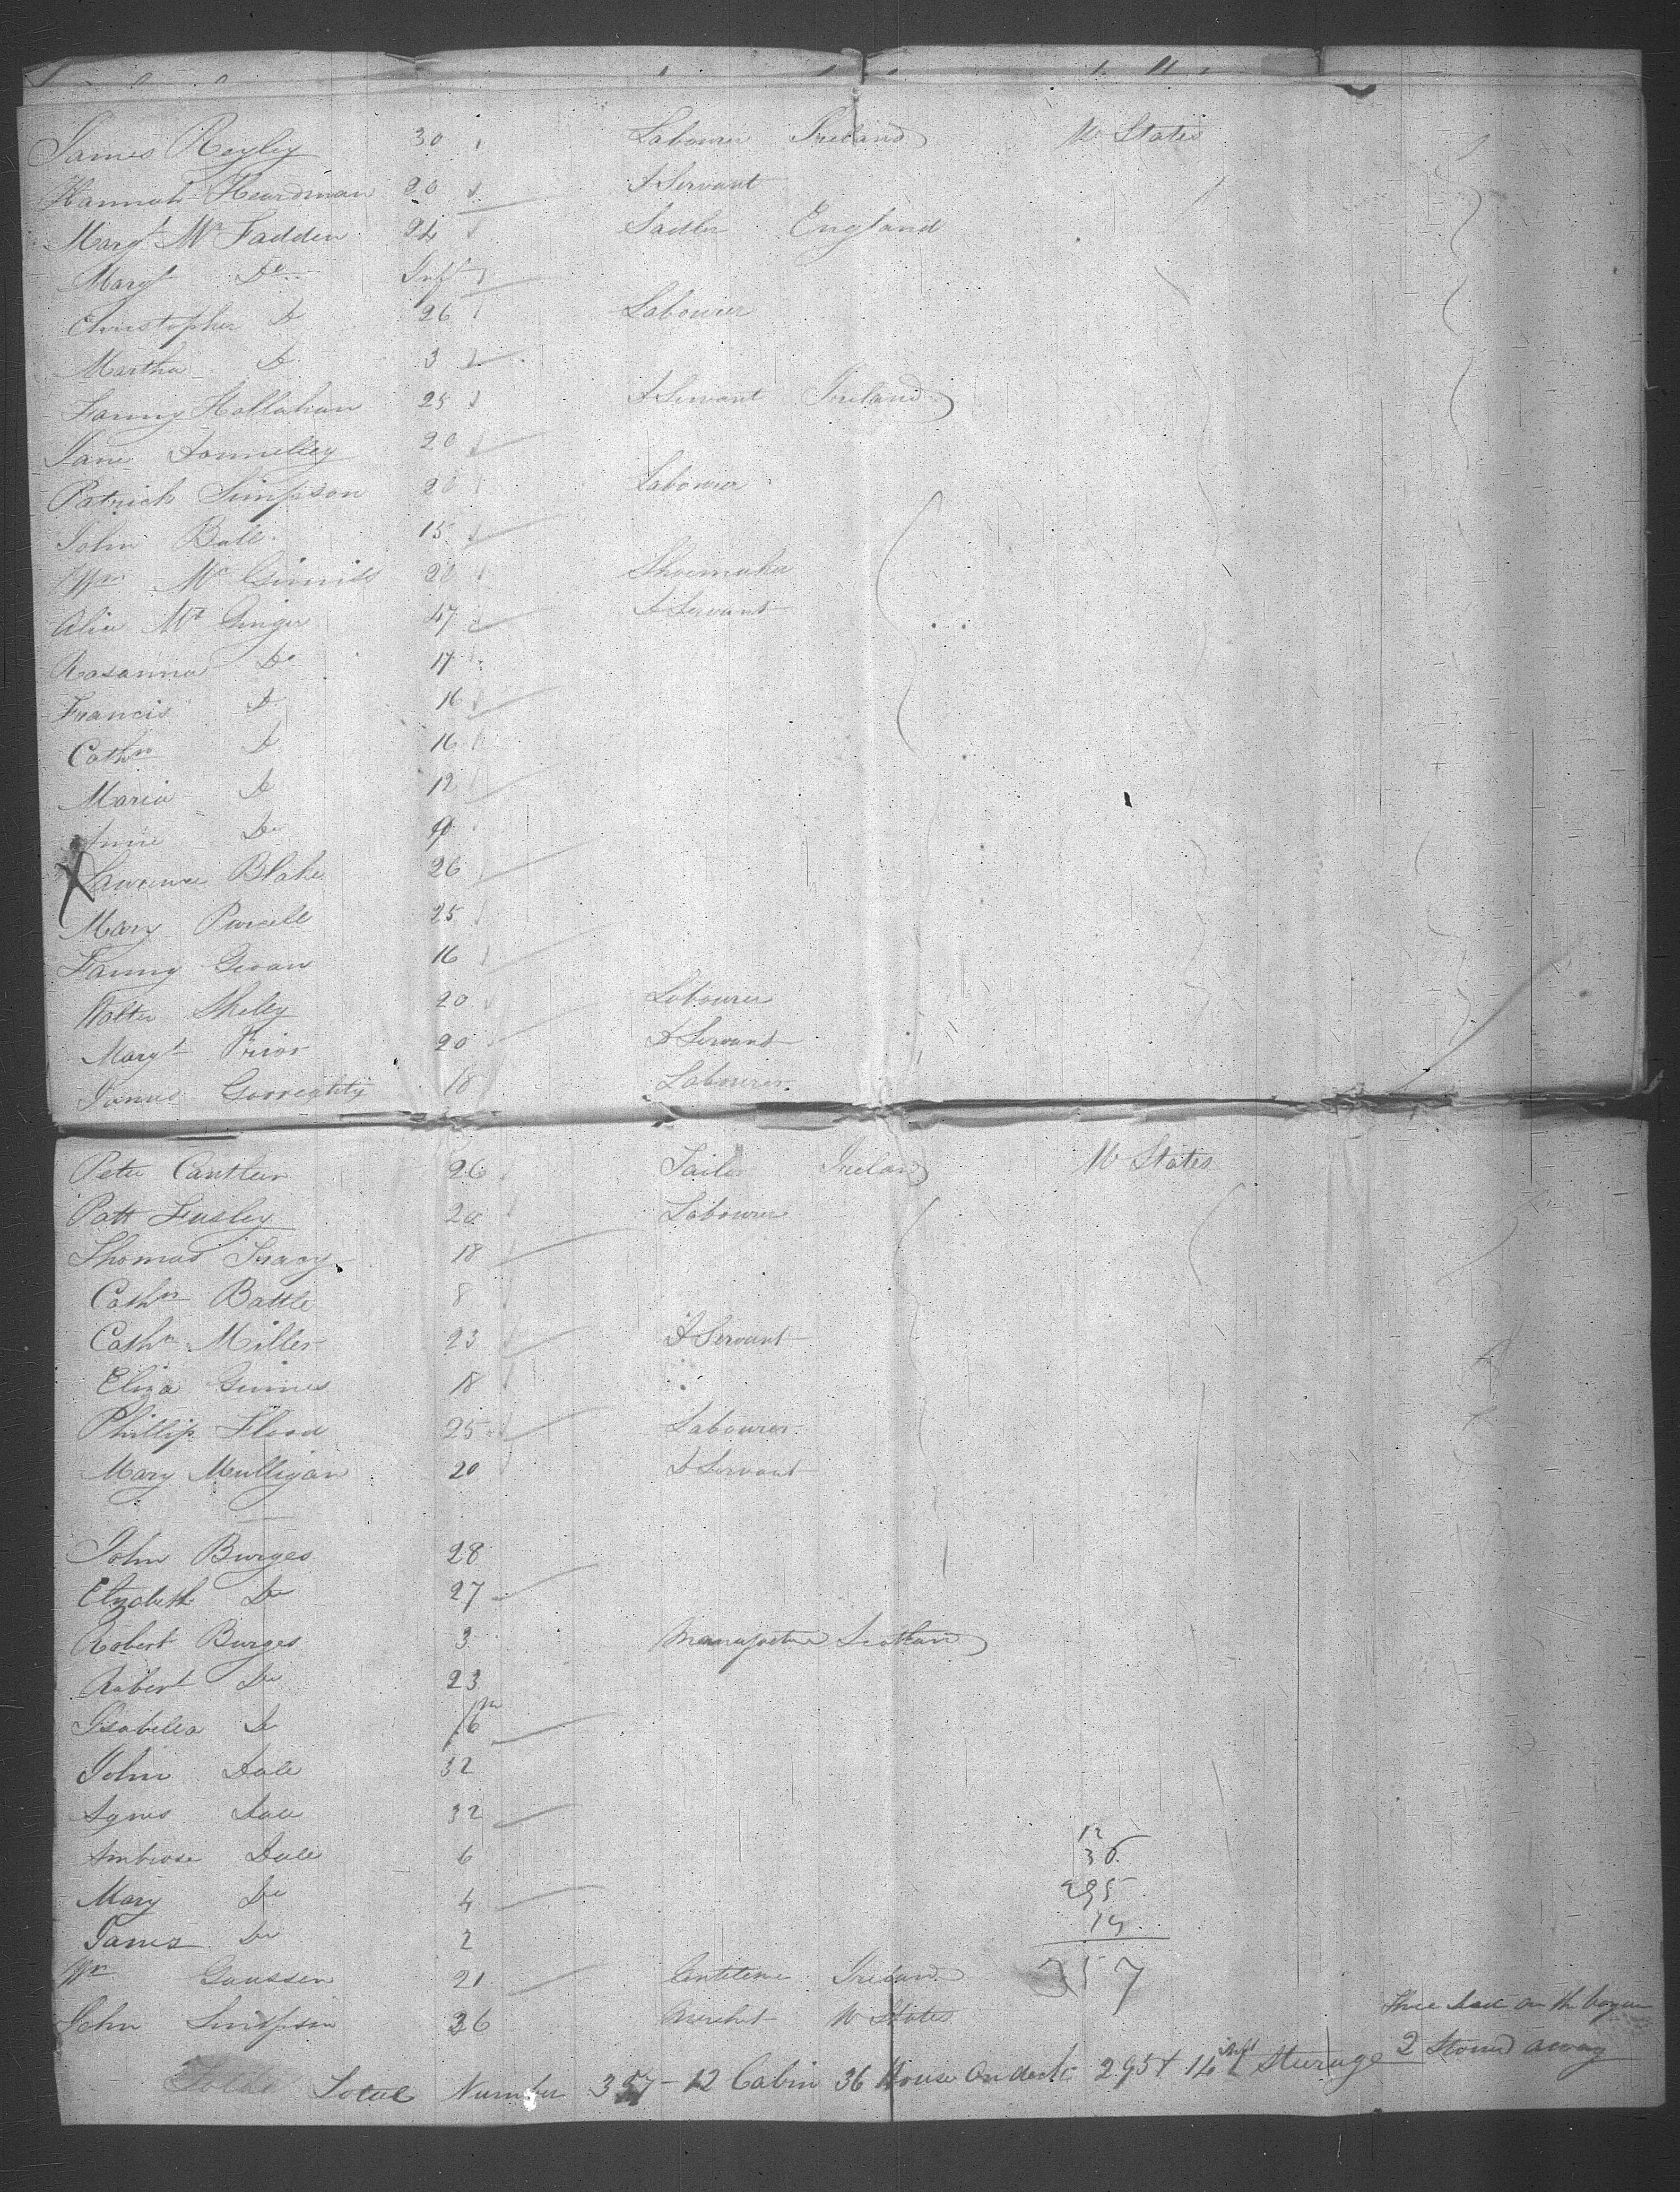 James Reyley 30 Labourer Ireland U States
Hannah Heardman 20 D Servant
Margt Mc Fadden 24 Sadler England
Margt Do Inft
Christopher Do 26 Labourer
Martha Do 3
Fanny Hallahan 25 D Servant Ireland
Jane Donnelley 20
Patrick Simpson 20 Labourer
John Ball 15
Wm Mc Ginniss 20 Shoemaker
Alice Mc Ginger 47 D Servant
Rosanna Do 17
Francis Do 16
Cathn Do 16
Maria Do 12
Anne Do 9
X Lawrence Blake 26
Mary Purcell 25
Fanny Gevan 16
Walter Shelly 20 Labourer
Margt Prior 20 D Servant
James Gorreghty 18 Labourer
Peter Cantlen 26 Tailor Ireland U States
Patt Fusley 20 Labourer
Thomas Tracy 18
Cathn Battle 8
Cathn Miller 23 D Servant
Eliza Guines 18
Phillip Flood 25 Labourer
Mary Mulligan 20 D Servant
John Burges 28
Elizabeth Do 27
Robert Burges 3 Scotland
Robert Do 23
Isabella Do 6 m
John Dale 32
Agnes Dale 32
Ambrose Dale 6
12
36
Mary Do 4
295
14
James Do 2
357
Wm Gaussen 21 Ireland
John Simpson 36 Mercht U States
Three born on the voyage
Total Number 357 - 12 Cabin 36 House on deck 295 + 14 Inft Sterage 2 Stowed away